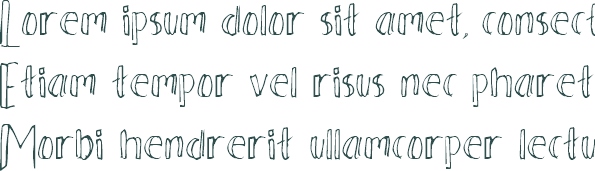 Lorem ipsum dolor sit amet, consect
Etiam tempor vel risus nec pharet
Morbi hendrerit ullamcorper lectu